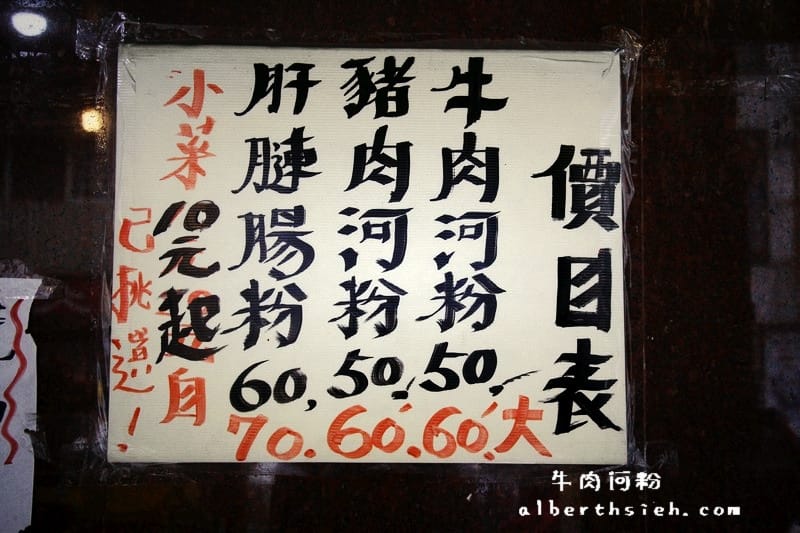 價目表
牛肉河粉 50,
豬肉河粉 50,
肝腱腸粉 60,
大 60. 60. 70.
小菜 10元起 自
己挑選！
牛肉河粉
alberthsieh.com